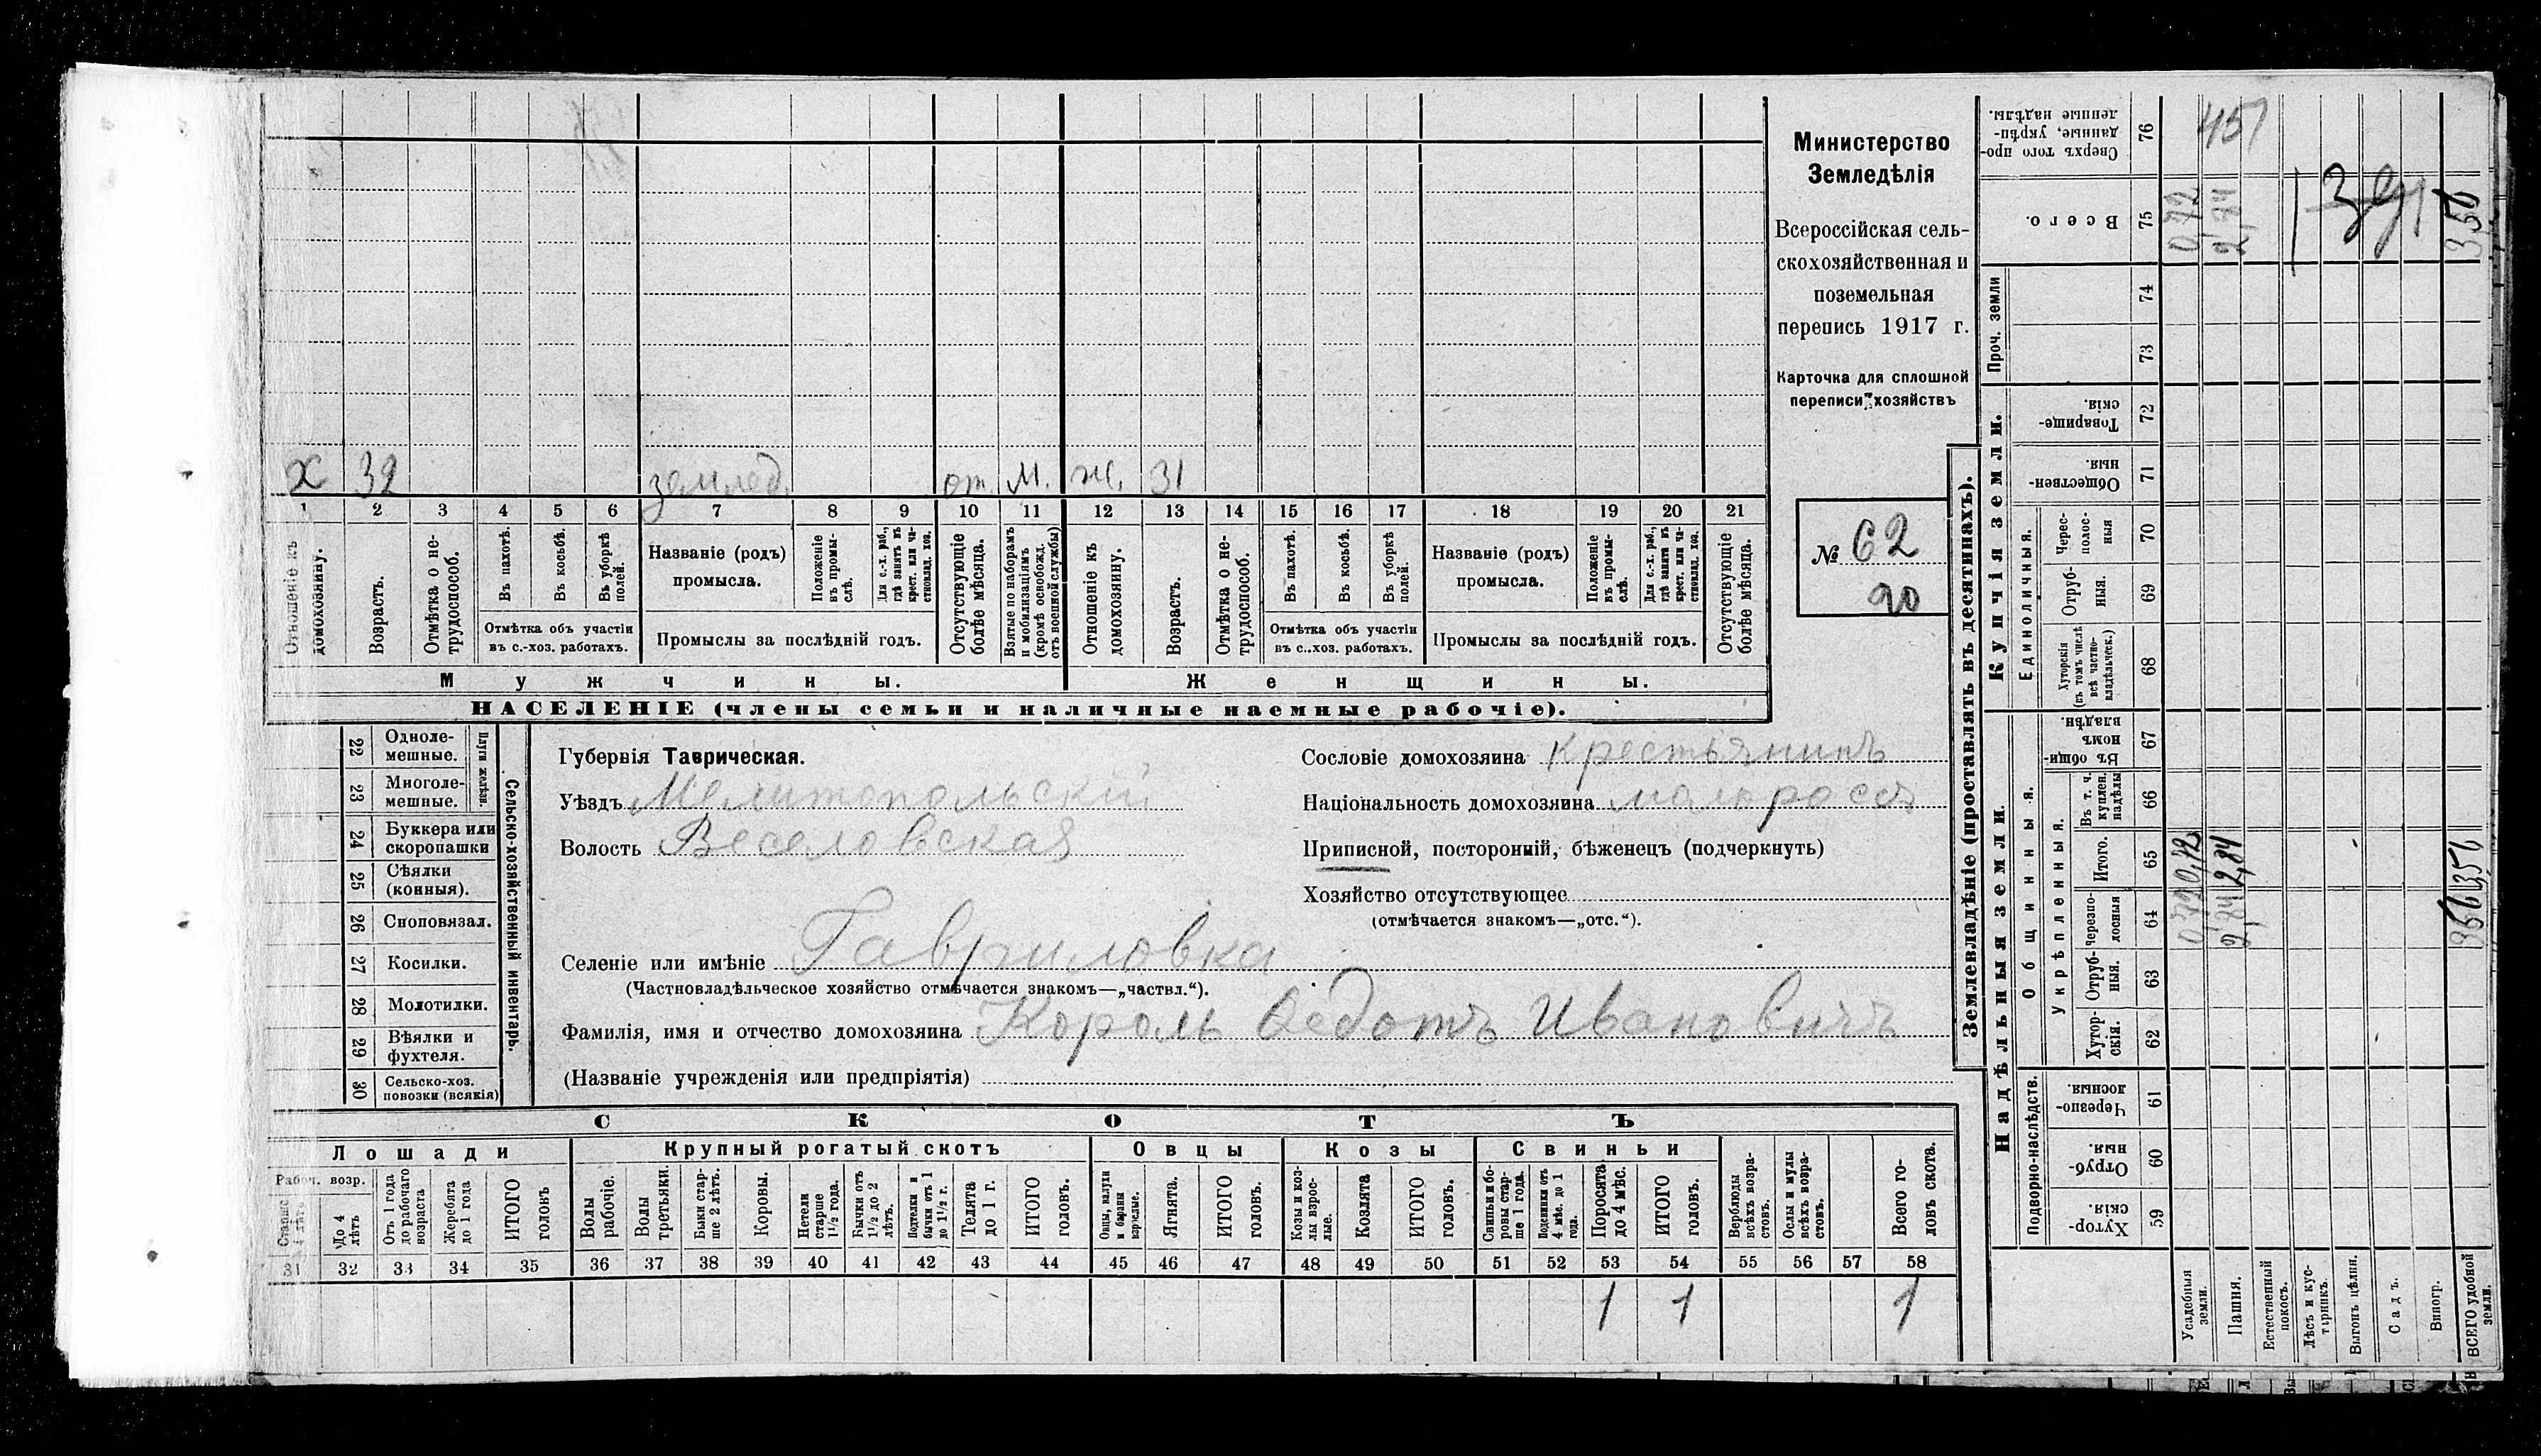 х 32 землед. от. м. ж. 31
1 2 3 4 5 6 7 8 9 10 11 12 13 14 15 16 17 18 19 20 21
Отношеніе къ домохозяину.
Возрастъ.
Отмѣтка о не-
трудоспособ.
Въ пахотѣ.
Въ косьбѣ.
Въ уборкѣ
полей.
Отмѣтка объ участіи
въ с.-хоз. работахъ.
Названіе (родъ)
промысла.
Положеніе
въ промы-
слѣ.
Для с.-х. раб.,
гдѣ занятъ въ
крест. или ча-
стновлад. хоз.
Промыслы за послѣдній годъ.
Отсутствующіе
болѣе мѣсяца.
Взятые по наборамъ
и мобилизаціямъ
(кромѣ освобожд.
отъ военной службы)
Отношеніе къ
домохозяину.
Возрастъ.
Отмѣтка о не-
трудоспособ.
Въ пахотѣ.
Въ косьбѣ.
Въ уборкѣ
полей.
Отмѣтка объ участіи
въ с..хоз. работахъ.
Названіе (родъ)
промысла.
Положеніе
въ промы-
слѣ.
Для с.-х. раб.,
гдѣ занята въ
крест. или ча-
стновлад. хоз.
Промыслы за послѣдній годъ.
Отсутствующіе
болѣе мѣсяца.
Мужчины.
Женщины.
НАСЕЛЕНІЕ (члены семьи и наличные наемные рабочіе).
Министерство
Земледѣлія
Всероссійская сель-
скохозяйственная и
поземельная
перепись 1917 г.
Карточка для сплошной
переписи хозяйствъ
№ 62
90
22 Одноле-
мешные.
23 Многоле-
мешные.
Плуги желѣзн.
24 Буккера или
скоропашки
25 Сѣялки
(конныя).
26 Сноповязал.
27 Косилки.
28 Молотилки.
29 Вѣялки и
фухтеля.
30 Сельско-хоз.
повозки (всякія)
Сельско-хозяйственный инвентарь.
Губернія Таврическая.
Уѣздъ Мелитопольскій
Волость Веселовская
Селеніе или имѣніе Гавриловка
(Частновладѣльческое хозяйство отмѣчается знакомъ—„частвл.“).
Фамилія, имя и отчество домохозяина Король Ѳедотъ Ивановичъ
(Названіе учрежденія или предпріятія)
Сословіе домохозяина крестьянинъ
Національность домохозяина малороссъ
Приписной, посторонній, бѣженецъ (подчеркнуть)
Хозяйство отсутствующее
(отмѣчается знакомъ—„отс.“).
СКОТЪ
Лошади
Рабоч. возр.
До 4
лѣтъ
Отъ 1 года
до рабочаго
возраста
Жеребята
до 1 года
ИТОГО
головъ
Крупный рогатый скотъ
Волы
рабочіе.
Волы
третьяки.
Быки стар-
ше 2 лѣтъ.
Коровы.
Нетели
старше
1½ года.
Бычки отъ
1½ до 2
лѣтъ.
Подтелки и
бычки отъ 1
до 1½ г.
Телята
до 1 г.
ИТОГО
головъ.
Овцы
Овцы, валухи
и бараны
взрослые.
Ягнята.
ИТОГО
головъ.
Козы
Козы и коз-
лы взрос-
лые.
Козлята
ИТОГО
головъ.
Свиньи
Свиньи и бо-
ровы стар-
ше 1 года.
Подсвинки отъ
4 мѣс. до 1
года.
Поросята
до 4 мѣс.
ИТОГО
головъ.
Верблюды
всѣхъ возра-
стовъ.
Ослы и мулы
всѣхъ возра-
стовъ.
Всего го-
ловъ скота.
31 32 33 34 35 36 37 38 39 40 41 42 43 44 45 46 47 48 49 50 51 52 53 54 55 56 57 58
1 1 1
Землевладѣніе (проставлять въ десятинахъ).
Сверхъ того про-
данные, укрѣп-
ленные надѣлы.
76
Всего.
75
0,72
2,84
3,56
Проч. земли
74
73
Купчія земли.
Товарище-
скія.
72
Обществен-
ныя.
71
Единоличныя.
Черес-
полос-
ныя
70
Отруб-
ныя.
69
Хуторскія
(въ томъ числѣ
всѣ частно-
владѣльческ.)
68
Надѣльныя земли.
Общинныя.
Въ общи-
номъ
владѣн.
67
Укрѣпленныя.
Въ т. ч.
куплен.
надѣлы
66
Итого.
65
0,72
2,84
3,56
Черезпо-
лосныя
64
0,72
2,84
3,56
Отруб-
ныя.
63
Хутор-
скія.
62
Подворно-наслѣдств.
Черезпо-
лосныя
61
Отруб-
ныя
60
Хутор-
скія.
59
Усадебныя
земли.
Пашня.
Естественный
покосъ.
Лѣсъ и кус-
тарникъ.
Выгонъ цѣлин.
Садъ.
Виногр.
ВСЕГО удобной
земли.